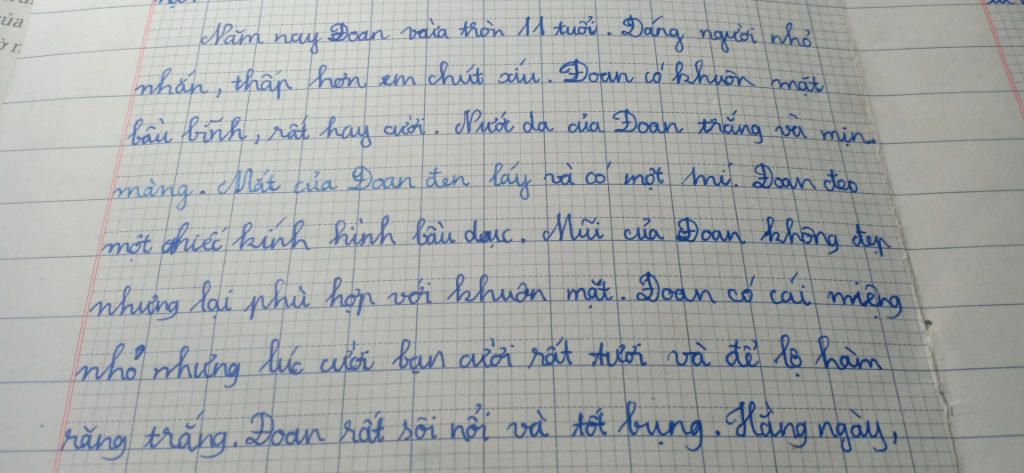 của
ờ r
Năm nay Đoan vừa tròn 11 tuổi. Dáng người nhỏ
nhắn, thấp hơn em chút xíu. Đoan có khuôn mặt
bầu bĩnh, rất hay cười. Nước da của Đoan trắng và mịn
màng. Mắt của Đoan đen láy và có một mí. Đoan đeo
một chiếc kính hình bầu dục. Mũi của Đoan không đẹp
nhưng lại phù hợp với khuôn mặt. Đoan có cái miệng
nhỏ nhưng lúc cười bạn cười rất tươi và để lộ hàm
răng trắng. Đoan rất sôi nổi và tốt bụng. Hằng ngày,